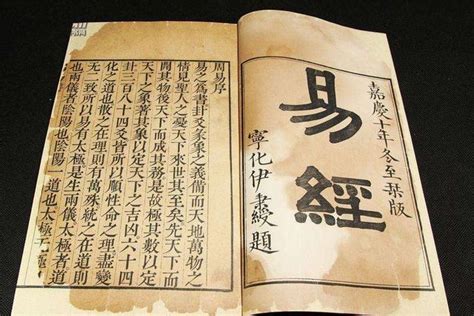 嘉慶十年 冬至栞版
易經
寧化伊秉綬題
周易序
易之爲書卦爻彖象之義備而天地萬物之
情見聖人之憂天下來世其至矣先天下而
開其物後天下而成其務是故極其數以定
天下之象著其象以定天下之吉凶六十四
卦三百八十四爻皆所以順性命之理盡變
化之道也散之在理則有萬殊統之在道則
无二致所以易有太極是生兩儀太極者道
也兩儀者陰陽也陰陽一道也太極